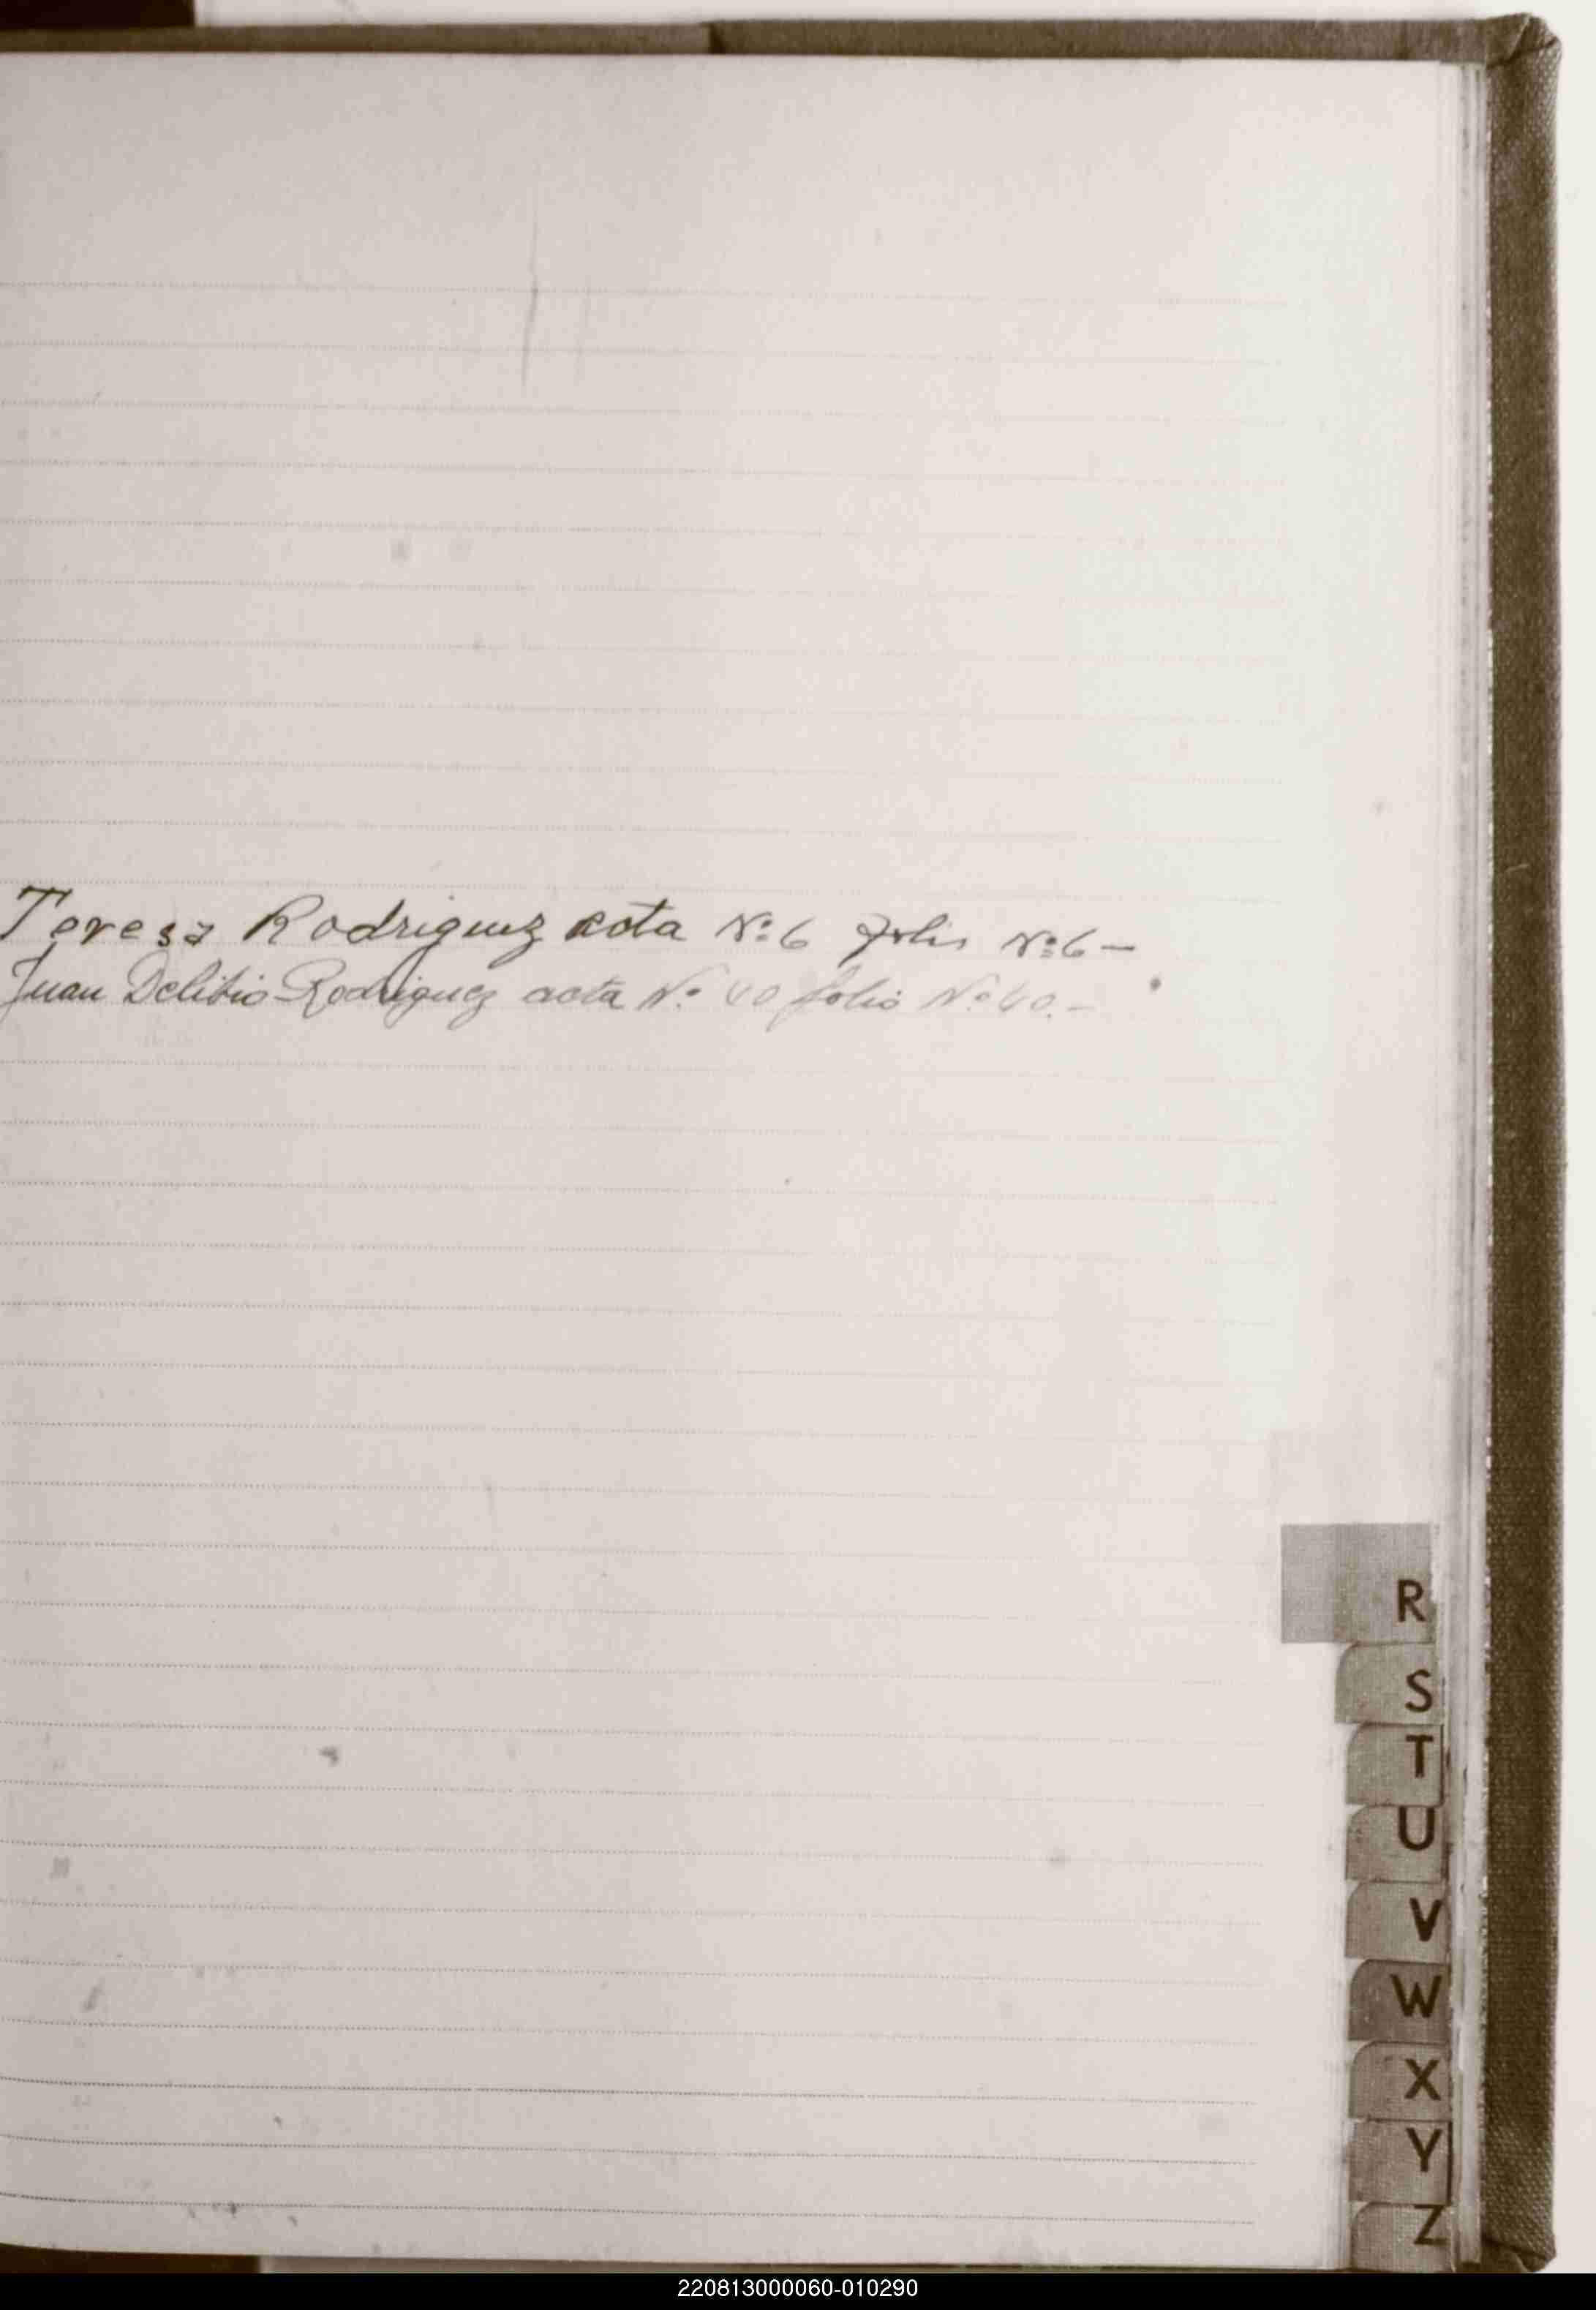 Teresa Rodriguez acta Nº 6 folio Nº 6 —
Juan Delibio Rodriguez acta Nº 40 folio Nº 40. —
R
S
T
U
V
W
X
Y
Z
220813000060-010290